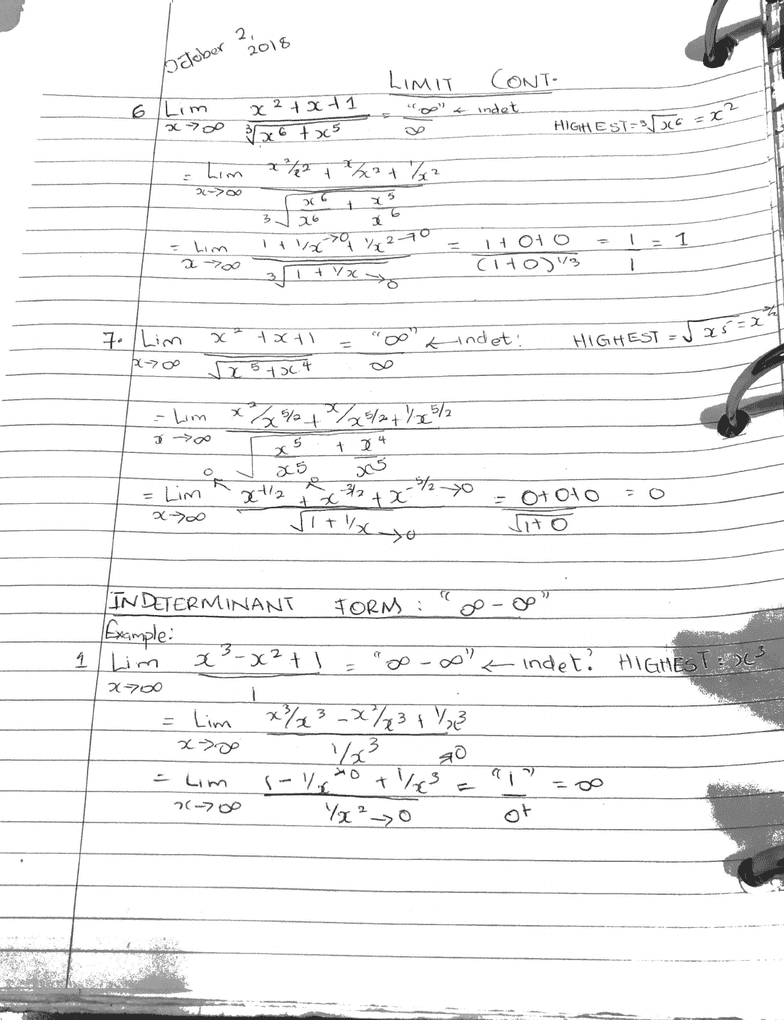 October 2, 2018
LIMIT CONT.
6 Lim x→∞ (x² + x + 1)/(∛(x⁶ + x⁵)) = "∞"/∞ ← indet HIGHEST = ∛x⁶ = x²
= Lim x→∞ (x²/x² + x/x² + 1/x²)/(∛(x⁶/x⁶ + x⁵/x⁶))
= Lim x→∞ (1 + 1/x→0 + 1/x²→0)/(∛(1 + 1/x→0)) = (1+0+0)/((1+0)^1/3) = 1/1 = 1
7. Lim x→∞ (x² + x + 1)/(√(x⁵ + x⁴)) = "∞"/∞ ← indet: HIGHEST = √x⁵ = x^5/2
= Lim x→∞ (x²/x^5/2 + x/x^5/2 + 1/x^5/2)/(√(x⁵/x⁵ + x⁴/x⁵))
= Lim x→∞ (x^-1/2→0 + x^-3/2→0 + x^-5/2→0)/(√(1 + 1/x→0)) = (0+0+0)/(√(1+0)) = 0
INDETERMINANT FORM : "∞ - ∞"
Example:
1 Lim x→∞ (x³ - x² + 1)/1 = "∞ - ∞" ← indet. HIGHEST = x³
= Lim x→∞ (x³/x³ - x²/x³ + 1/x³)/(1/x³)
= Lim x→∞ (1 - 1/x→0 + 1/x³→0)/(1/x²→0) = "1"/0⁺ = ∞